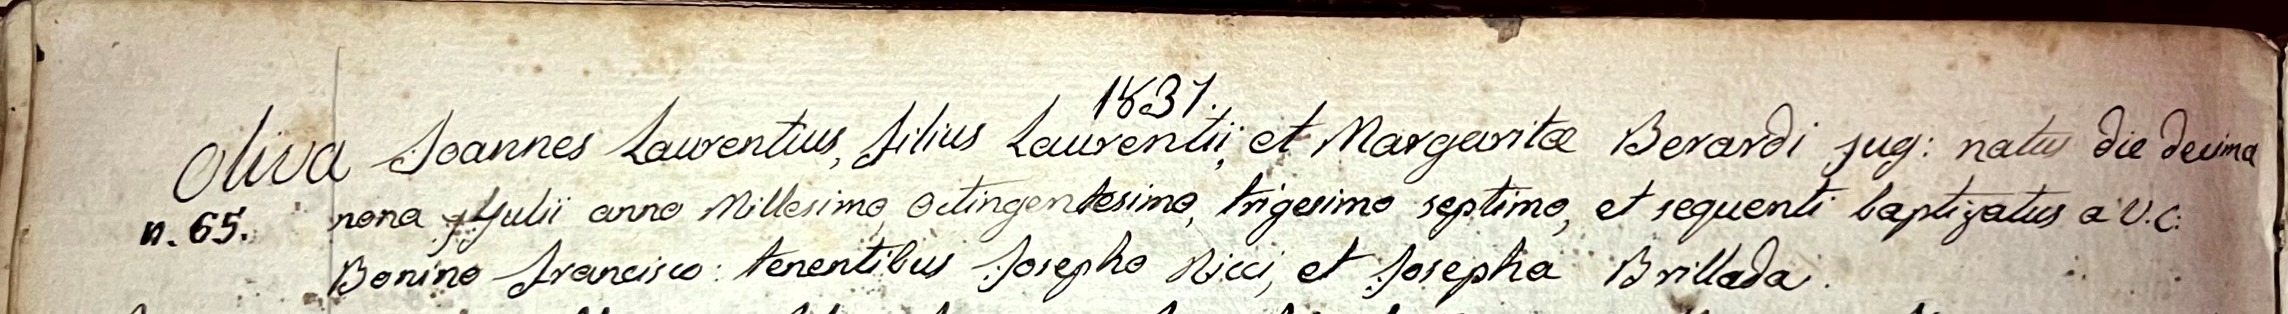 1837.
Oliva Joannes Laurentius, filius Laurentii, et Margaritæ Berardi jug: natus die decima
n. 65. nona Julii anno Millesimo, Octingentesimo, trigesimo septimo, et sequenti baptizatus a V.C.
Bonino Francisco: tenentibus Josepho Ricci, et Josepha Brillada.